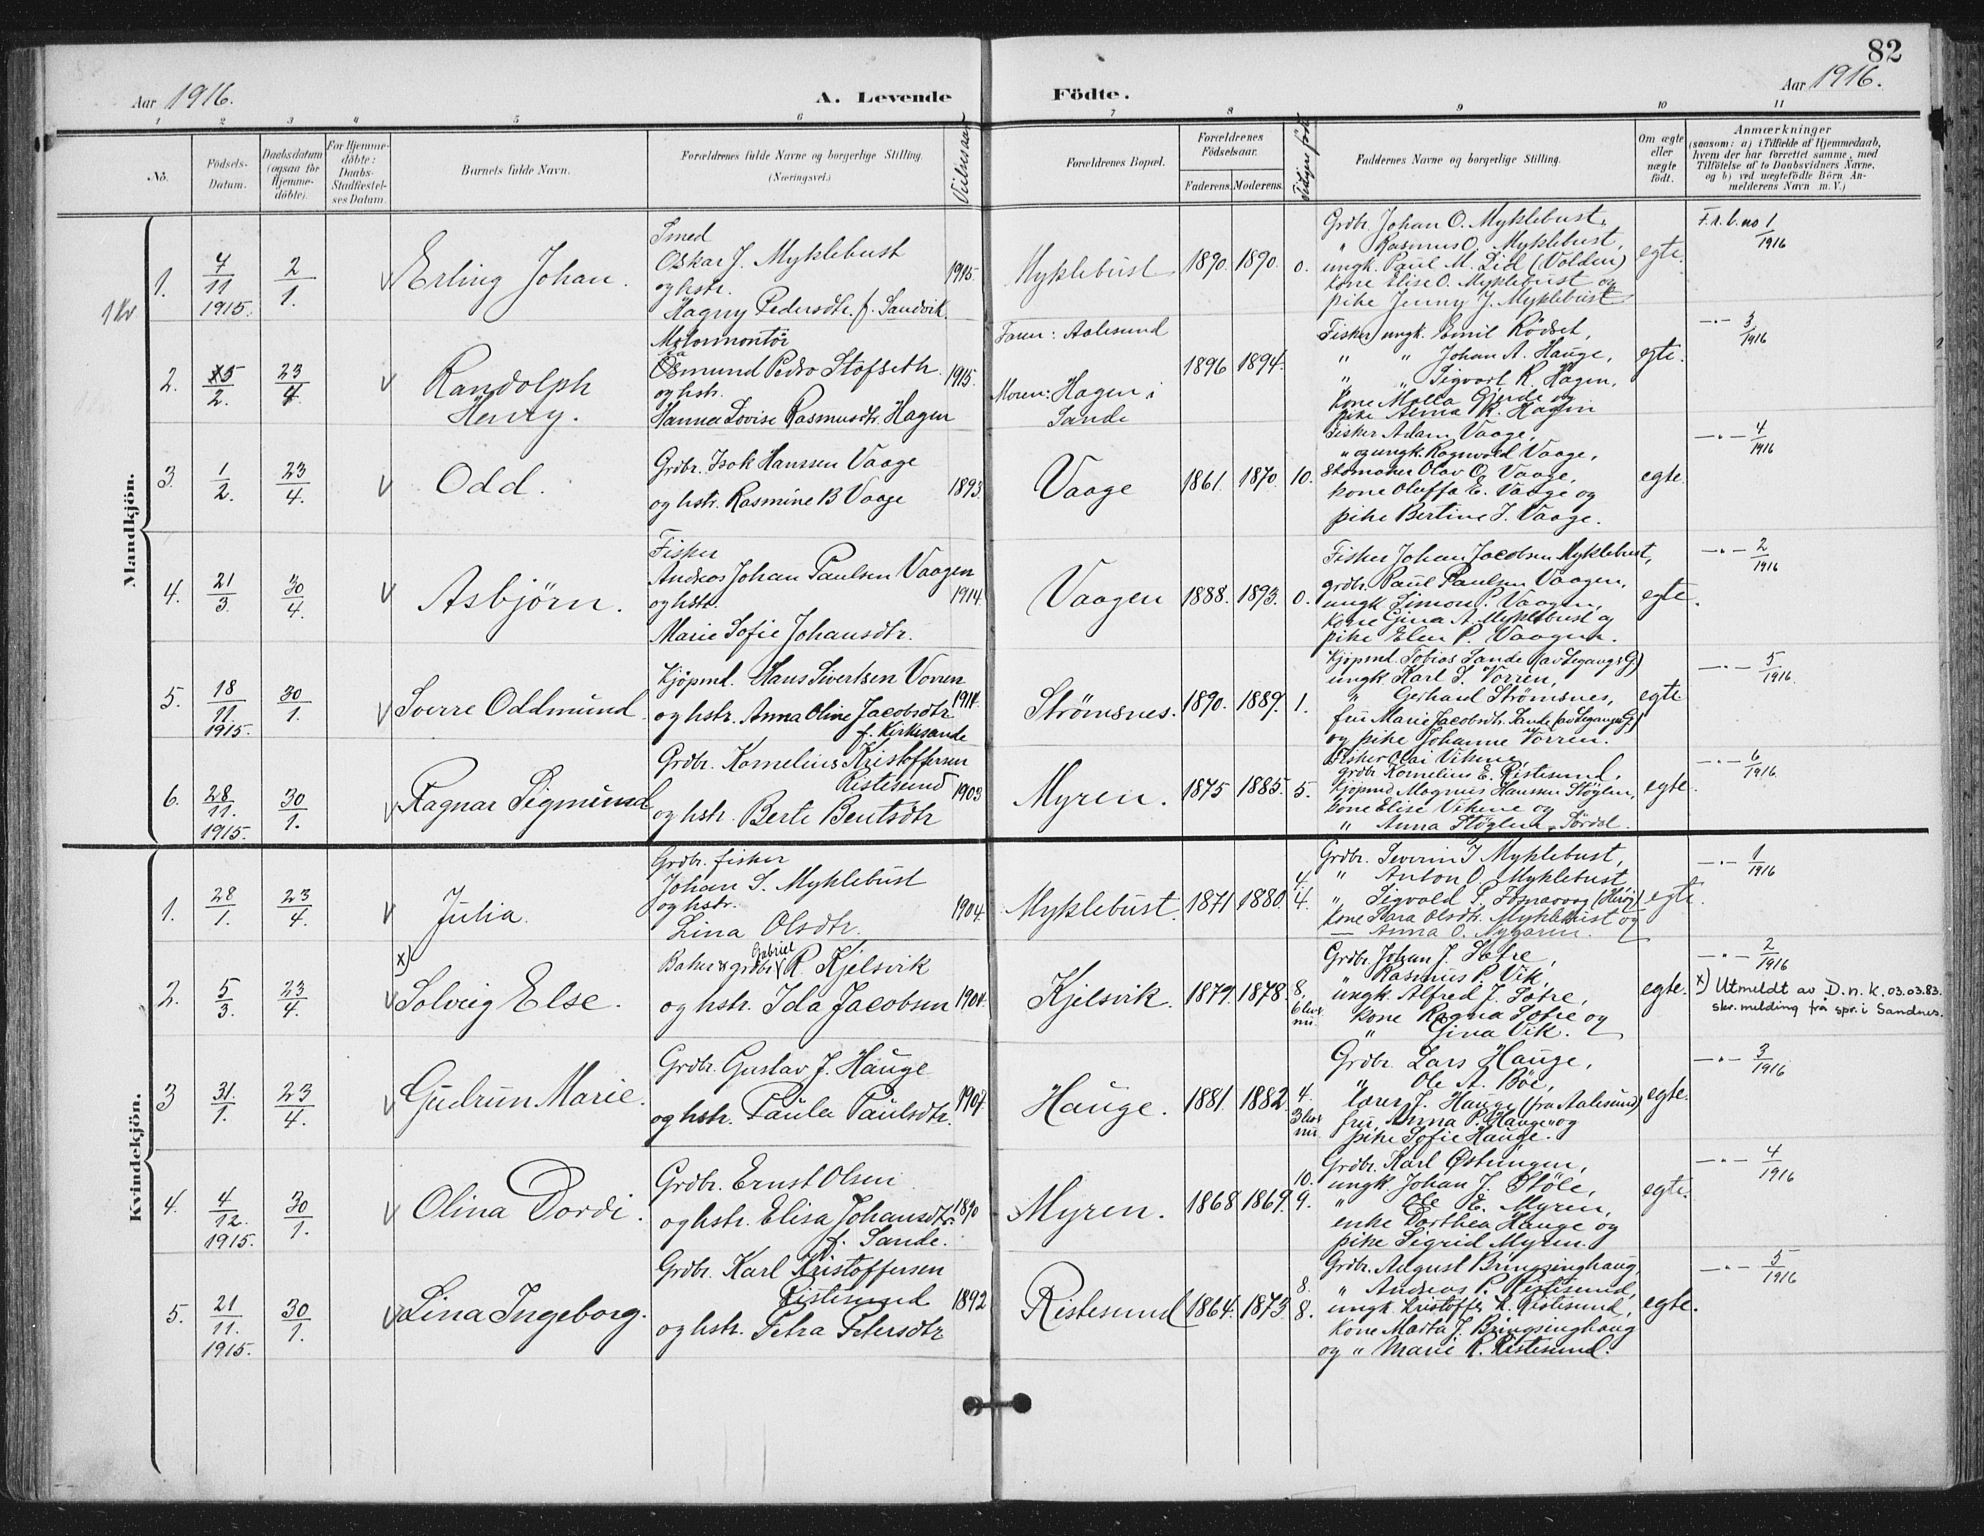 82
Aar 1916. A. Levende Födte. Aar 1916.
1 2 3 4 5 6 7 8 9 10 11
No. Födsels-Datum. Daabsdatum (ogsaa for Hjemmedöbte). For Hjemmedöbte: Daabs-Stadfæstelses Datum. Barnets fulde Navn. Forældrenes fulde Navne og borgerlige Stilling. (Næringsvei.) Vielsesaar Forældrenes Bopæl. Forældrenes Födselsaar. Faderens. Moderens. Tidligere født Faddernes Navne og borgerlige Stilling. Om ægte eller uægte födt. Anmærkninger (saasom: a) i Tilfælde af Hjemmedaab, hvem der har forrettet samme, med Tilföielse af to Daabsvidners Navne, og b) ved uægtefödte Börn Anmelderens Navn m. V.)
Mandkjön.
1 Kr
1. 7/11 1915. 2/1. Erling Johan. Smed
Oskar J. Myklebust
og hstr.
Magny Pedersdtr. f. Sandvik. 1915. Myklebust 1890. 1890. 0. Grdbr. Johan O. Myklebust,
" Rasmus O. Myklebust,
ungk. Paul M. Lid (Volden)
kone Elise O. Myklebust og
pike Jenny J. Myklebust egte. F.r.b. no 1/1916
2. 5/2. 23/4. Randolph
Henry. Motormontör
Osmund Pedro Stofseth
og hstr.
Hanna Lovise Rasmusdtr. Hagen 1915. Faren: Aalesund
Moren: Hagen i
Sande 1896 1894. Fisker, ungk. Emil Rödset,
" " Johan A. Hauge,
" " Sigvart R. Hagen,
kone Molla Gjerde og
pike Alma R. Hagen egte. —"— 3/1916
3. 1/2. 23/4. Odd. Grdbr. Isak Hanssen Vaage
og hstr. Rasmine B Vaage 1893. Vaage 1861. 1870. 10. Fisker Adam Vaage,
" og ungk. Ragnvald Vaage,
Skomaker Olav O. Vaage,
kone Oluffa E. Vaage og
pike Bertine I. Vaage. egte. —"— 4/1916
4. 21/3. 30/4. Asbjörn. Fisker
Andreas Johan Paulsen Vaagen
og hstr.
Marie Sofie Johansdtr. 1914. Vaagen 1888. 1893. 0. Fisker Johan Jacobsen Myklebust,
grdbr. Paul Paulsen Vaagen,
ungk. Simon P. Vaagen,
kone Gina A. Myklebust og
pike Elen P. Vaagen. egte. —"— 2/1916
5. 18/11 1915. 30/1. Sverre Oddmund Kjöpmd. Hans Sivertsen Vorren
og hstr. Anna Oline Jacobsdtr.
f. Kirkesande 1914. Strömsnes. 1890. 1889. 1. Kjöpmd. Tobias Sande
ungk. Karl S. Vorren,
" Gerhard Strömsnes,
fru Marie Jacobsdtr. Sande
og pike Johanne Vorren. egte —"— 5/1916.
6. 28/11. 1915. 30/1. Ragnar Sigmund Grdbr. Kornelius Kristoffersen
Ristesund
og hstr. Berte Bentsdtr 1903 Myren. 1875 1885. 5. Fisker Olai Vikene,
grdbr. Kornelius E. Ristesund,
kjöpmd Magnus Hanssen Stöylen,
kone Elise Vikene og
" Anna Stöylen, Sördal. egte. —"— 6/1916.
Kvindekjön.
1. 28/1. 23/4. Julia. Grdbr. fisker
Johan S. Myklebust
og hstr.
Lina Olsdtr. 1904. Myklebust. 1871 1880. 4. i 4. Grdbr. Severin I Myklebust,
" Anton O. Myklebust,
" Sigvald P. Fosnavaag (Herö)
kone Klara Olsdtr. Myklebust og
— Anna O. Nygaren. egte. —"— 1/1916
2. 5/3. 23/4. x) Solveig Else. Baker & grdbr. Gabriel R. Kjelsvik
og hstr. Ida Jacobsen 1901. Kjelsvik. 1879. 1878. 8. 6 lev. nu. Grdbr. Johan J. Sætre,
" Rasmus P. Vik,
ungk. Alfred J. Sætre,
kone Ragna Sætre og
" Gina Vik. egte. —"— 2/1916
x) Utmeldt av D.n.k. 03.03.83.
skr. melding frå spr. i Sandnes.
3 31./1. 23/4. Gudrun Marie. Grdbr. Gustav J. Hauge
og hstr. Paula Paulsdtr. 1907. Hauge. 1881. 1882. 4. 3 lev. nu. Grdbr. Lars Hauge,
" Ole A. Böe,
lærer J. Hauge (fra Aalesund)
fru Anna P. Hauge og
pike Sofie Hauge. egte. —"— 3/1916
4. 4/12. 1915. 30/1. Olina Dordi. Grdbr. Ernst Olsen
og hstr. Elisa Johansdtr.
f. Sande. 1890 Myren. 1868 1869. 10. 9. Grdbr. Karl Østungen,
ungk. Johan J. Støle,
" Ole E. Myren,
enke Dorthea Hauge og
pike Sigrid Myren. egte. —"— 4/1916
5. 21/11. 1915. 30/1. Lina Ingeborg. Grdbr. Karl Kristoffersen
Ristesund
og hstr. Petra Petersdtr 1892 Ristesund 1864. 1873. 8. 8. Grdbr. August Bringsinghaug,
" Andreas P. Ristesund,
ungk. Kristoffer K. Ristesund,
kone Marta J. Bringsinghaug
og " Marie K. Ristesund. egte. —"— 5/1916